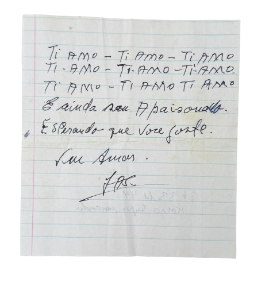 Ti AMO - Ti AMO - Ti AMO
Ti - AMO - Ti - AMO - Ti AMO.
Ti AMO - Ti AMO Ti AMO
E ainda sou Apaixonado.
Esperando que você goste.
Seu Amor.